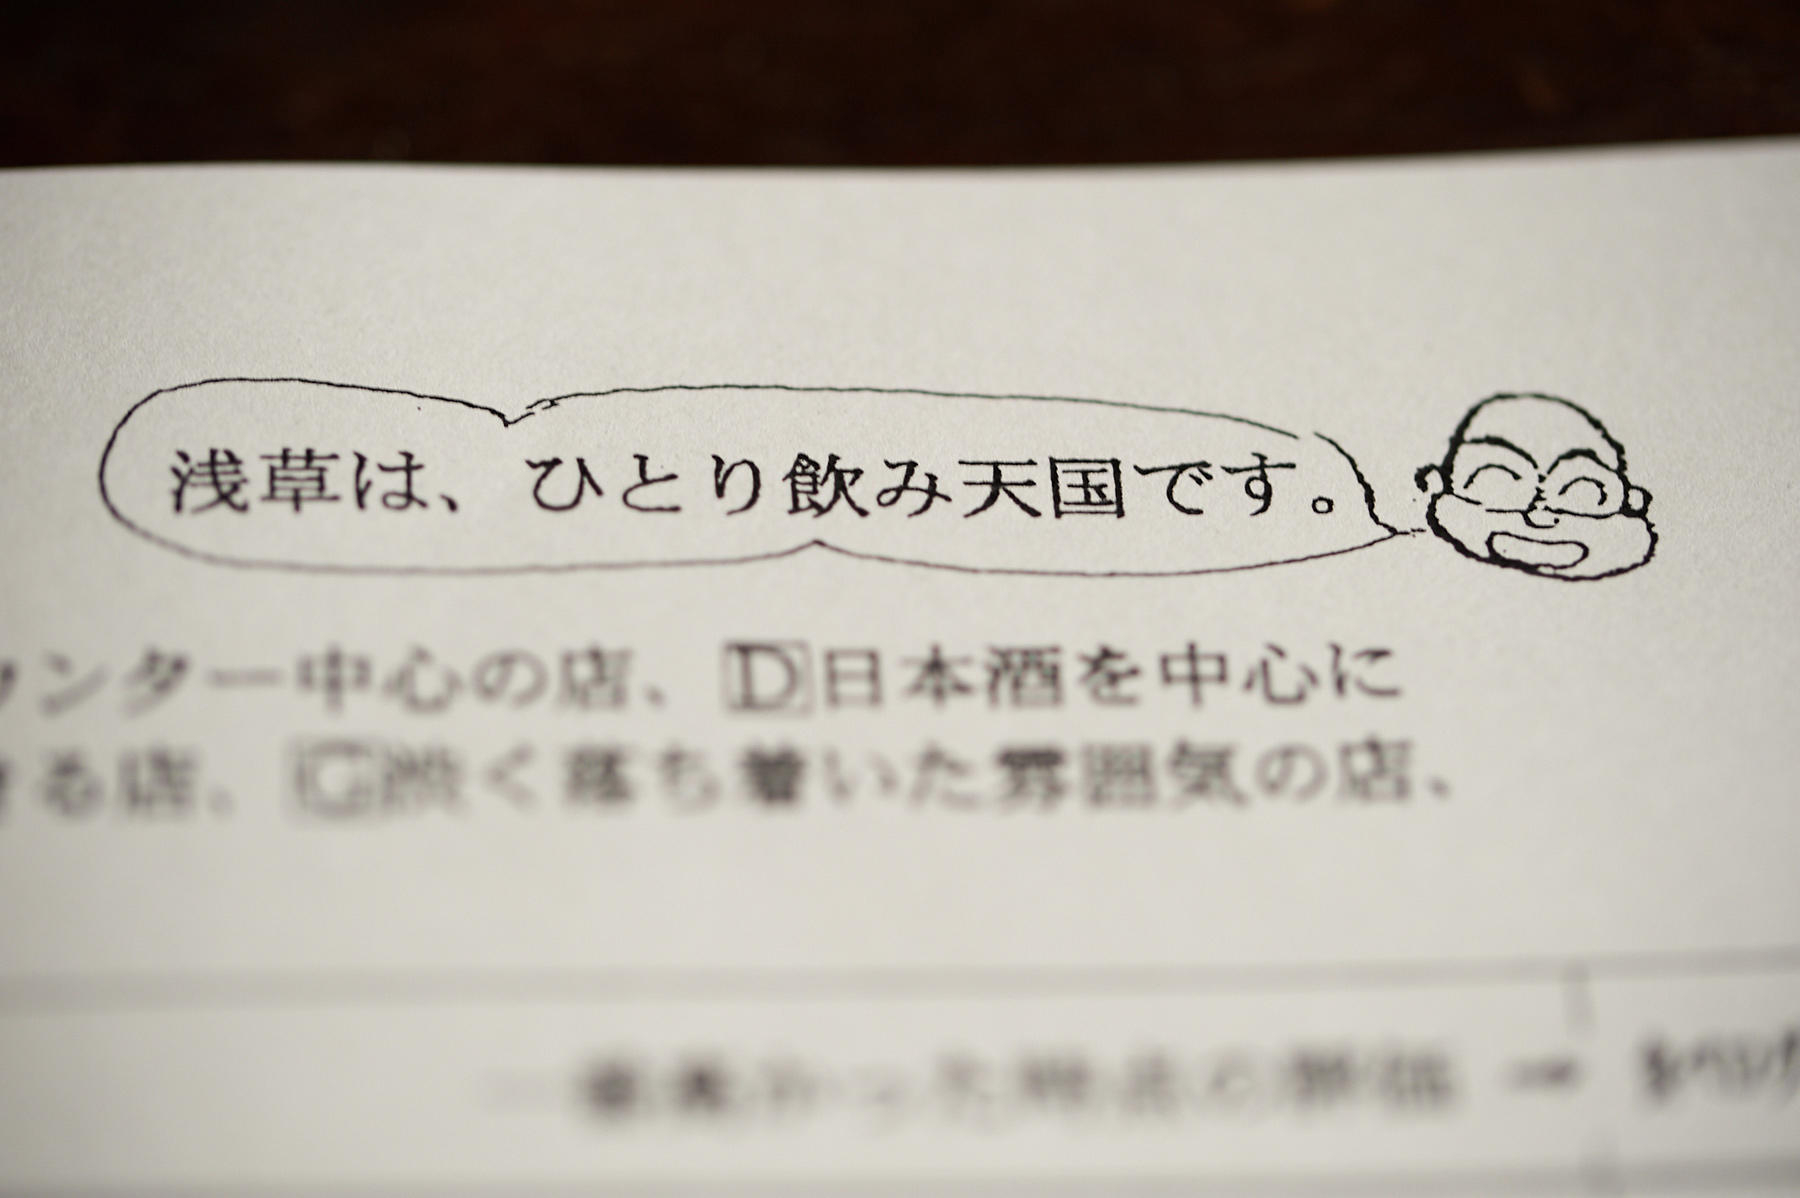 浅草は、ひとり飲み天国です。
ンター中心の店、D日本酒を中心に
る店、G渋く落ち着いた雰囲気の店、